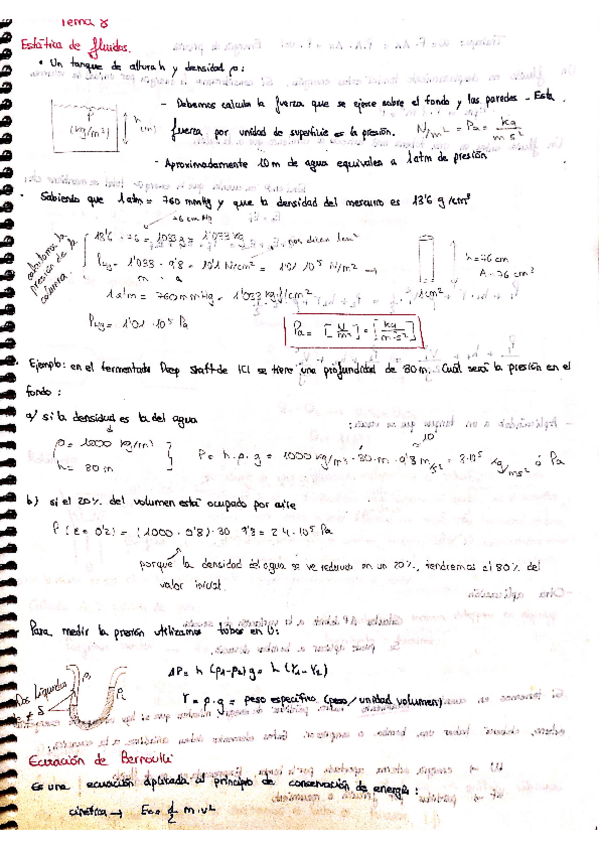 Tema 8
Estática de fluidos.
• Un tanque de altura h y densidad ρ:
- Debemos calcular la fuerza que se ejerce sobre el fondo y las paredes - Esta
fuerza por unidad de superficie es la presión. N/m² = Pa = kg / m s²
ρ (kg/m³) h (m)
- Aproximadamente 10 m de agua equivalen a 1 atm de presión
Sabiendo que 1 atm = 760 mmHg y que la densidad del mercurio es 13'6 g/cm³
76 cm Hg
calculamos la presión de la columna.
13'6 · 76 = 1033 g = 1'033 kg
P Hg = 1'033 · 9'8 = 10'1 N/cm² = 1'01 10⁵ N/m² →
m · a
1 atm = 760 mmHg = 1'033 kg·f/cm²
1 cm²
P Hg = 1'01 · 10⁵ Pa
Pa = [N/m²] = [kg/m·s²]
Ejemplo: en el fermentador Deep Shaft de ICI se tiene una profundidad de 30 m. Cuál será la presión en el
fondo:
a) si la densidad es la del agua
ρ = 1000 kg/m³
h = 30 m
10
P = h·ρ·g = 1000 kg/m³ · 30 m · 9'8 m/s² = 3·10⁵ kg/ms² ó Pa
b) si el 20% del volumen está ocupado por aire
P (ε = 0'2) = (1000 · 0'8) · 30 · 9'8 = 2'4 · 10⁵ Pa
porque la densidad del agua se ve reducida en un 20%, tendremos el 80% del
valor inicial.
Para medir la presión utilizamos tubos en U:
Dos líquidos de ≠ δ
ρ₁
ρ₂
ΔP = h (ρ₁-ρ₂) g = h (γ₁-γ₂)
γ = ρ·g = peso específico (peso/unidad volumen)
Ecuación de Bernoulli
Es una ecuación aplicada al principio de conservación de energía:
cinética → Ec = 1/2 m·v²